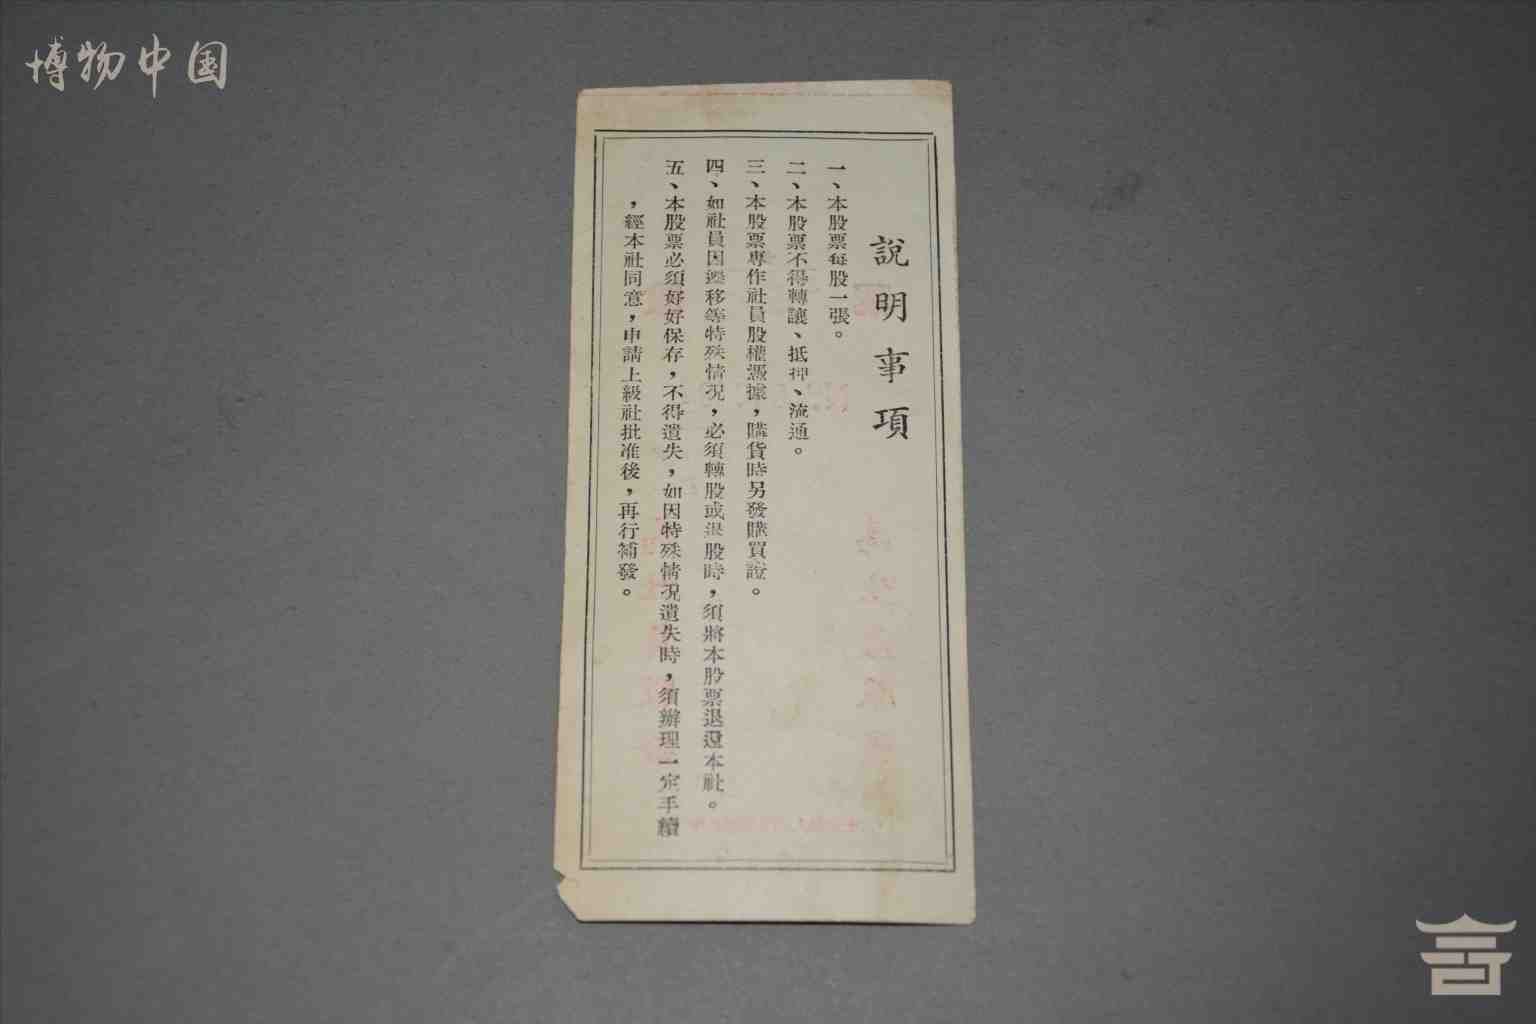 博物中国
說明事項
一、本股票每股一張。
二、本股票不得轉讓、抵押、流通。
三、本股票專作社員股權憑據，購貨時另發購買證。
四、如社員因遷移等特殊情況，必須轉股或退股時，須將本股票退還本社。
五、本股票必須好好保存，不得遺失，如因特殊情況遺失時，須辦理一定手續
，經本社同意，申請上級社批准後，再行補發。